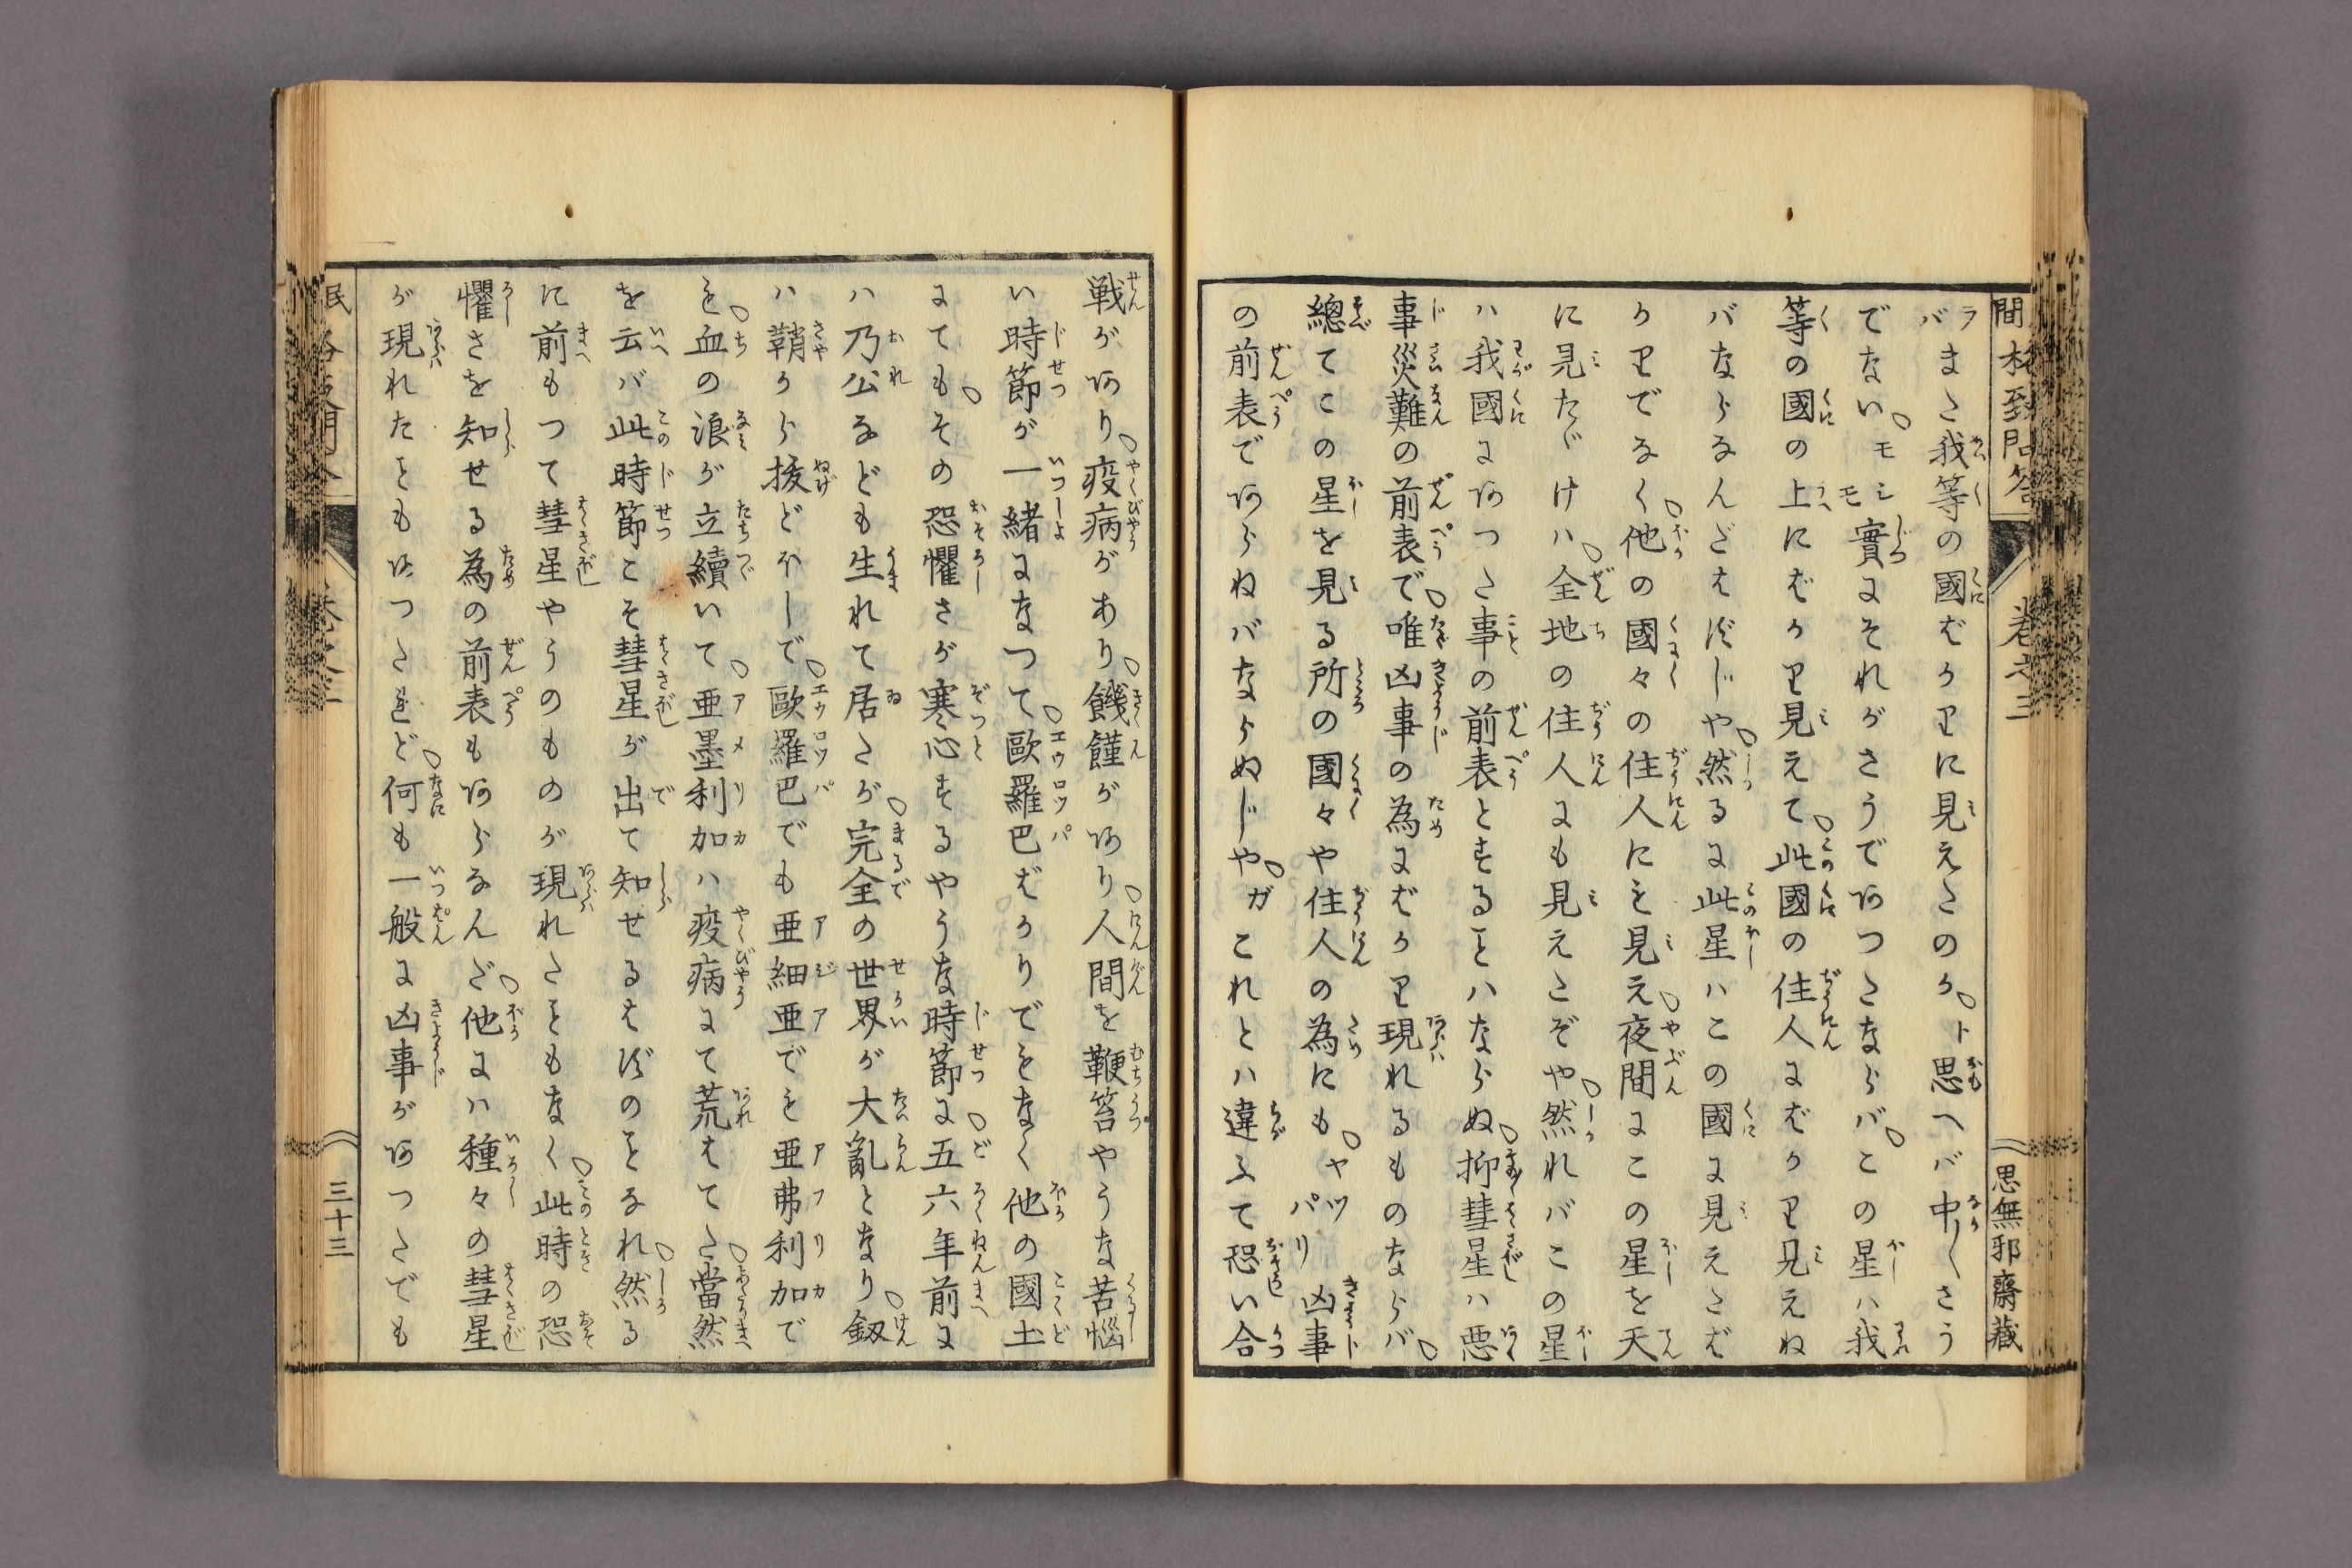 間格致問答 巻之三 思無邪齋藏
ラバまた我等の國ばかりに見えたのか、ト思へバ中〳〵さう
でない、モシモシ實にそれがさうであつたならバ、この星ハ我
等の國の上にばかり見えて、此國の住人にばかり見えね
バならなんだはずじや、然るに此星ハこの國に見えたば
かりでなく、他の國々の住人にも見え、夜間にこの星を天
に見たゞけハ、全地の住人にも見えたぞや、然れバこの星
ハ我國にあつた事の前表とすることハならぬ、抑彗星ハ惡
事災難の前表で、唯凶事の為にばかり現れるものならバ、
總てこの星を見る所の國々や住人の為にも、ヤツパリ凶事
の前表であらねバならぬじや、ガこれとハ違ふて恐い合
戦があり、疫病があり、饑饉があり、人間を鞭笞やうな苦惱
い時節が一緒になつて、歐羅巴ばかりでもなく他の國土
にても、その恐懼さが寒心するやうな時節に、五六年前に
ハ乃公なども生れて居たが、完全の世界が大亂となり、釼
ハ鞘から拔どほしで、歐羅巴でも亜細亜でも亜弗利加で
も、血の浪が立續いて、亜墨利加ハ疫病にて荒はてた、當然
を云バ此時節こそ彗星が出て知せるはずのことなれ、然る
に前もつて彗星やうのものが現れたこともなく、此時の恐
懼さを知せる為の前表もあらなんだ、他にハ種々の彗星
が現れたこともあつたけれど、何も一般に凶事があつたでも
三十三